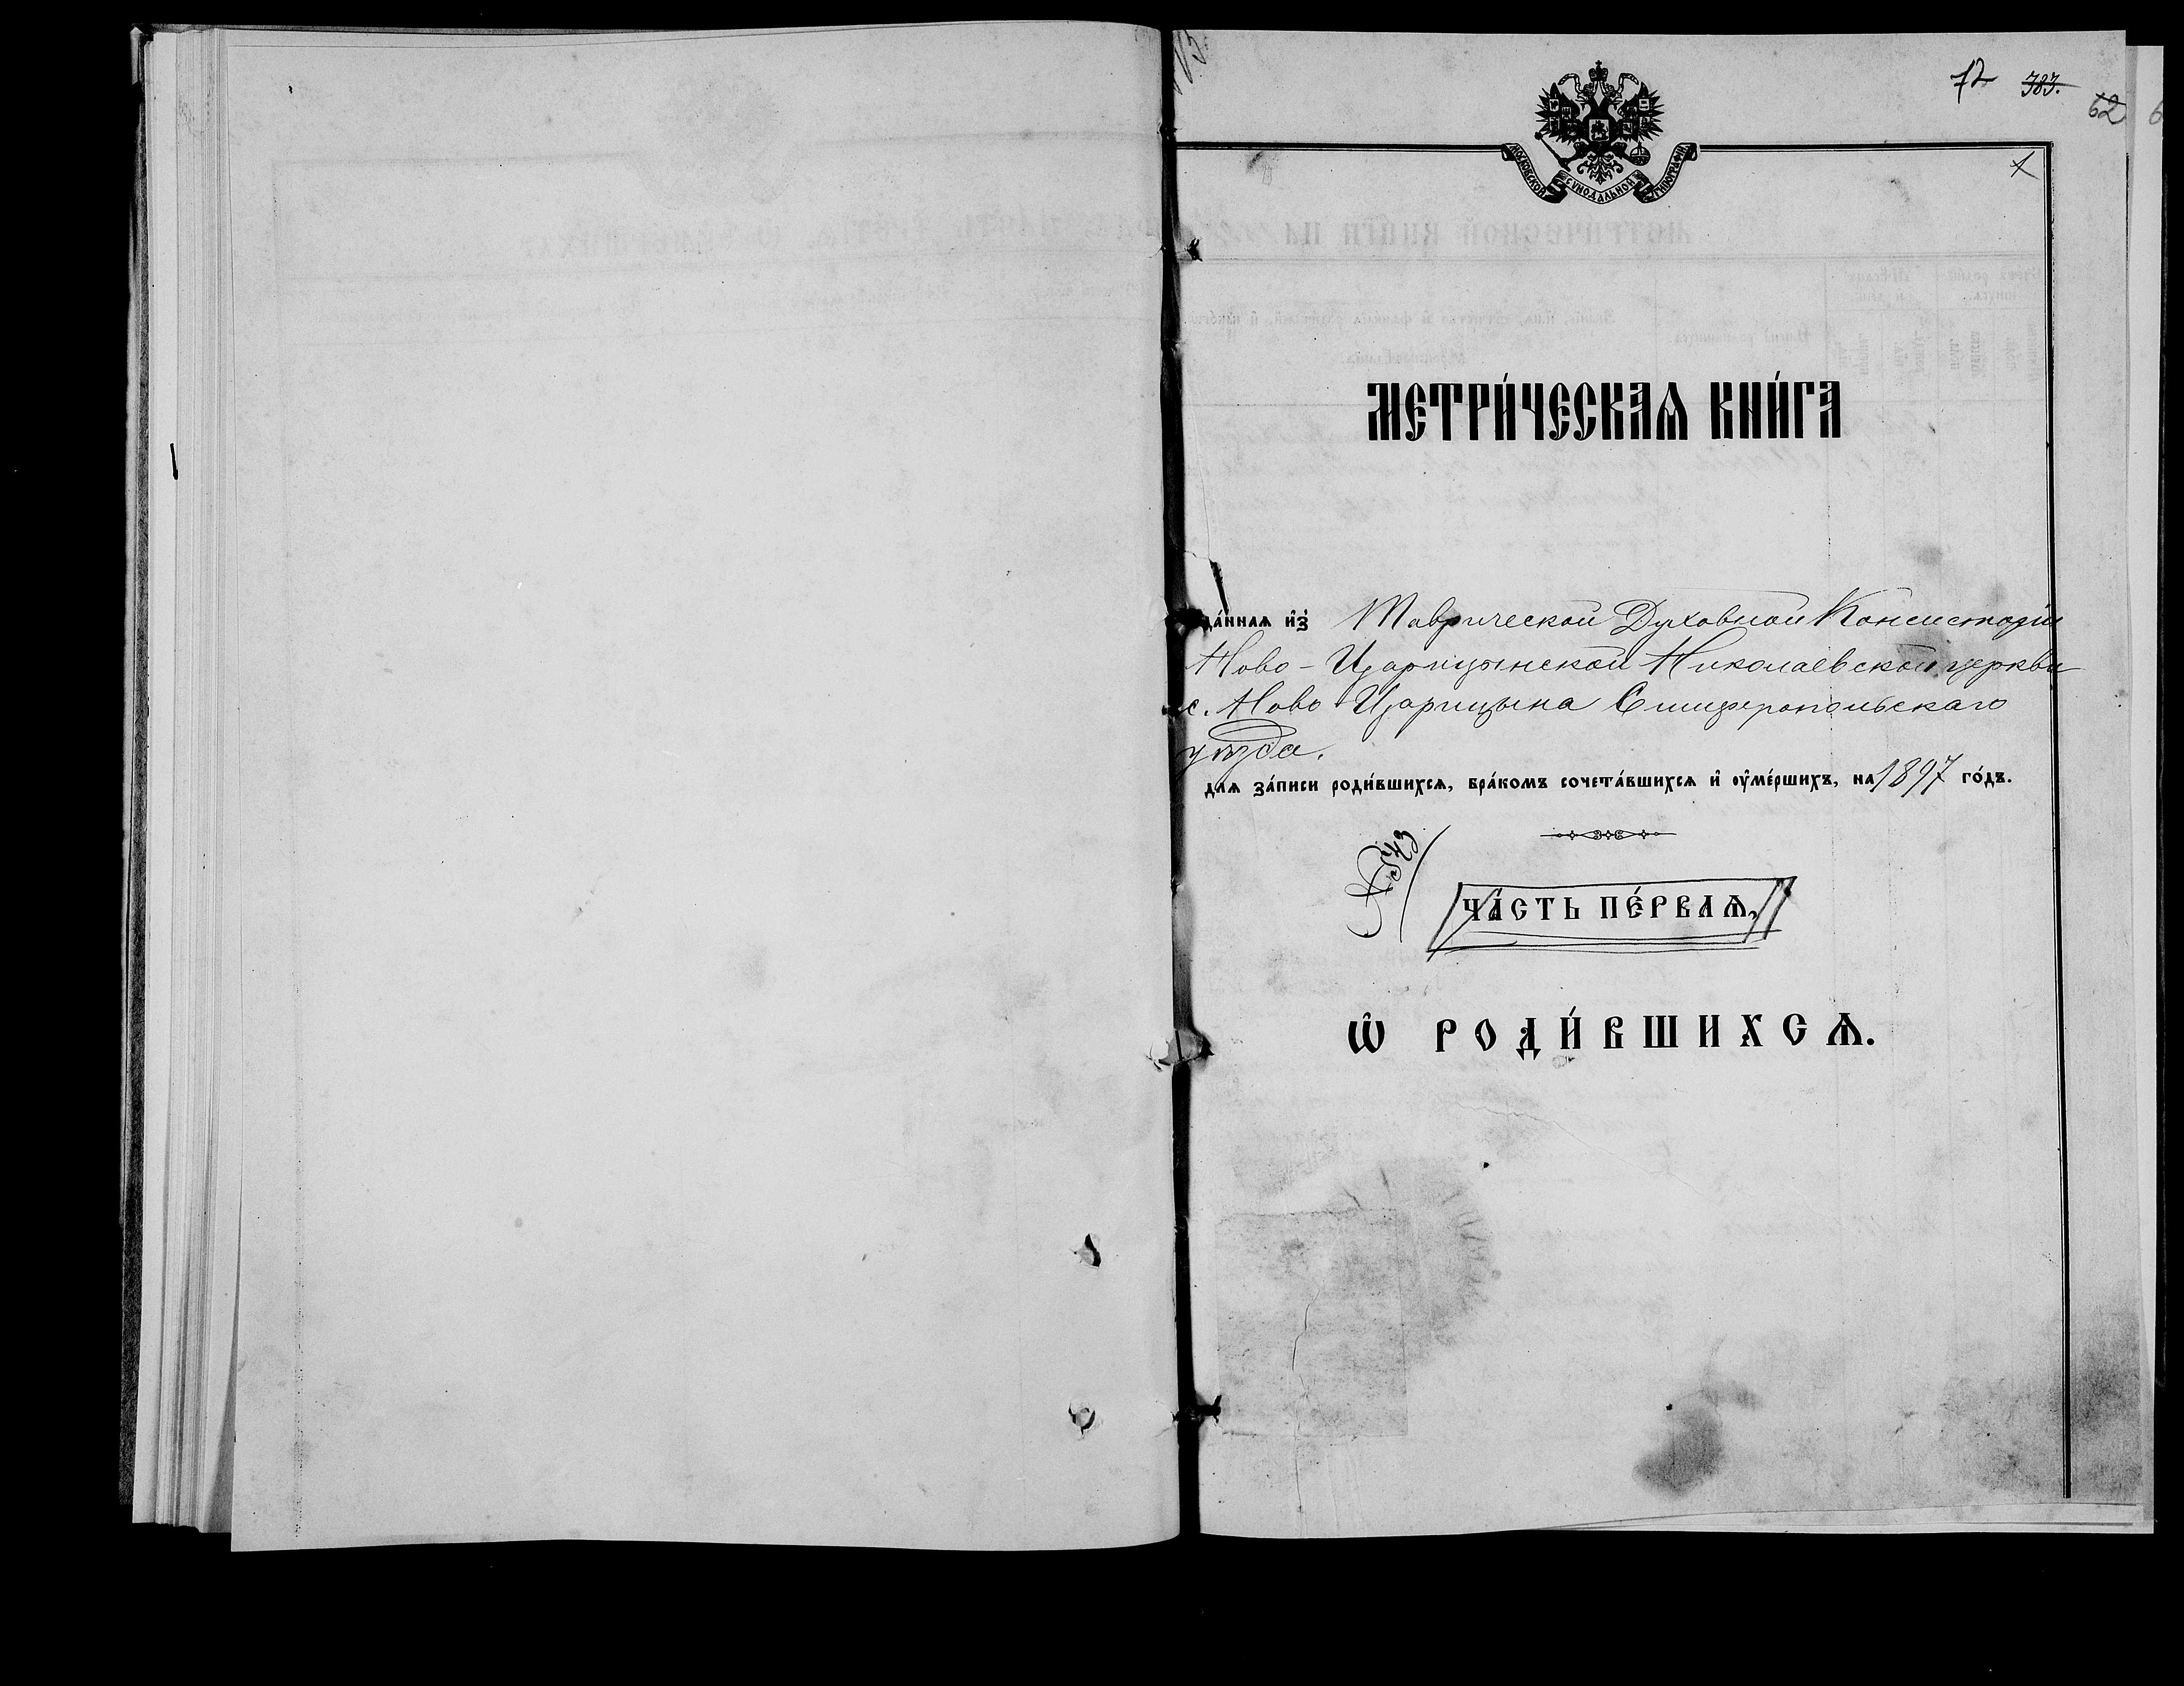 72 383. 62
МОСКОВСКОЙ СѴНОДАЛЬНОЙ ТИПОГРАФІИ
МЕТРИ́ЧЕСКАѦ КНИ́ГА
да́ннаѧ и҆з̾ Таврической Духовной Консисторіи
Ново-Царицынской Николаевской церкви
с. Ново-Царицына Симферопольскаго
уѣзда.
длѧ за́писи роди́вшихсѧ, бра́комъ сочета́вшихсѧ и҆ ᲂу҆ме́ршихъ, на 1897 го́дъ.
№ 543
ЧА́СТЬ ПЕ́РВАѦ,
Ѽ РОДИ́ВШИХСѦ.